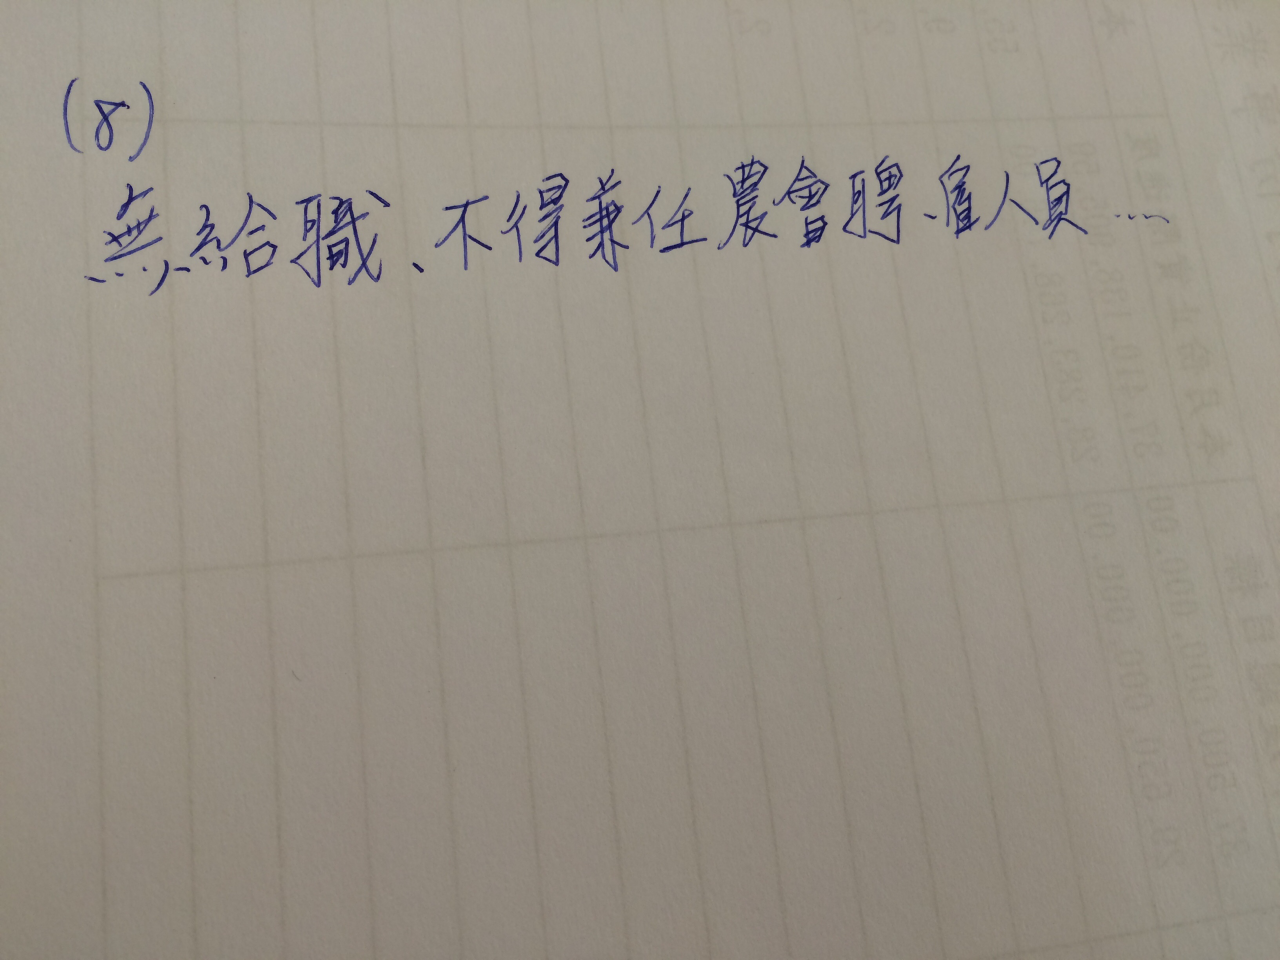 (8)
無給職、不得兼任農會聘、雇人員……